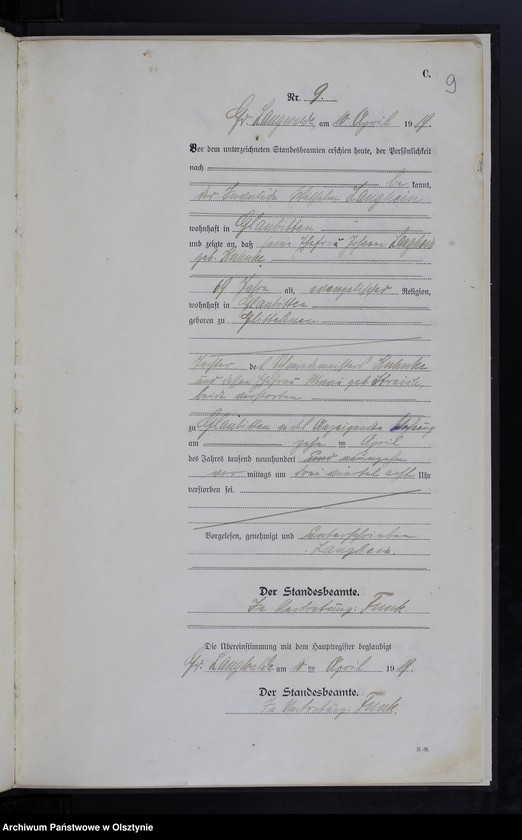 C.
9
Nr. 9.
Gr. Langwalde am 10 April 19 19.
Vor dem unterzeichneten Standesbeamten erschien heute, der Persönlichkeit
nach
be kannt,
der Invalide Wilhelm Langhein
wohnhaft in Glaubitten
und zeigte an, daß seine Ehefrau Langhein
geb. Kuhnke
69 Jahre alt, evangelischer Religion,
wohnhaft in Glaubitten
geboren zu
Tochter de s Kuhnke
und dessen Ehefrau geb.
beide verstorben
zu Glaubitten in de s Anzeigenden Wohnung
am zehn ten April
des Jahres tausend neunhundert und neunzehn
vor mittags um drei viertel acht Uhr
verstorben sei.
Vorgelesen, genehmigt und unterschrieben
Langhein.
Der Standesbeamte.
In Vertretung: Funk
Die Übereinstimmung mit dem Hauptregister beglaubigt
Gr. Langwalde am 10 ten April 19 19.
Der Standesbeamte.
In Vertretung: Funk.
Archiwum Państwowe w Olsztynie